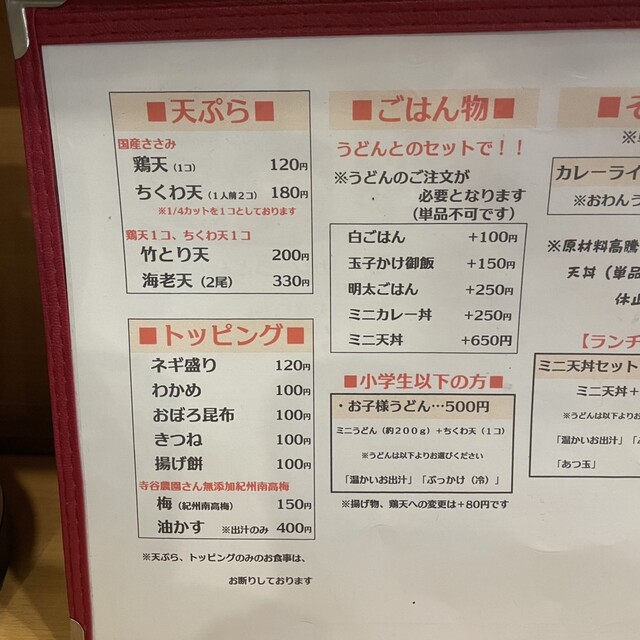 ■天ぷら■
国産ささみ
鶏天（1コ） 120円
ちくわ天（1人前2コ） 180円
※1/4カットを1コとしております
鶏天1コ、ちくわ天1コ
竹とり天 200円
海老天（2尾） 330円
■トッピング■
ネギ盛り 120円
わかめ 100円
おぼろ昆布 100円
きつね 100円
揚げ餅 100円
寺谷農園さん無添加紀州南高梅
梅（紀州南高梅） 150円
油かす ※出汁のみ 400円
※天ぷら、トッピングのみのお食事は、
お断りしております
■ごはん物■
うどんとのセットで！！
※うどんのご注文が
必要となります
（単品不可です）
白ごはん +100円
玉子かけ御飯 +150円
明太ごはん +250円
ミニカレー丼 +250円
ミニ天丼 +650円
■小学生以下の方■
・お子様うどん…500円
ミニうどん（約200g）+ちくわ天（1コ）
※うどんは以下よりお選びください
「温かいお出汁」「ぶっかけ（冷）」
※揚げ物、鶏天への変更は+80円です
■そ
カレーライ
※おわんう
※原材料高騰
天丼（単品
休止
【ランチ
ミニ天丼セット
ミニ天丼+
※うどんは以下より
「温かいお出汁」「
「あつ玉」